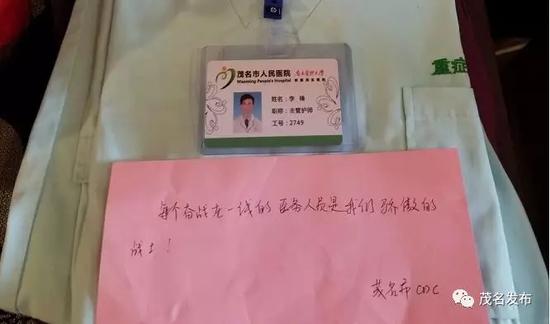 重症
茂名市人民医院
Maoming People's Hospital
姓名：李锋
职称：主管护师
工号：2749
每个奋战在一线的医务人员是我们骄傲的
战士！
茂名市CDC
茂名发布